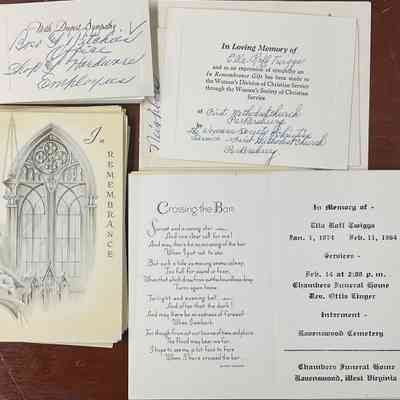 With Deepest Sympathy
Boso & Ritchies'
Office
Shop & Hardware
Employees
In Loving Memory of
Ella Roff Twiggs
and as an expression of sympathy an
In Remembrance Gift has been made to
the Women's Division of Christian Service
through the Woman's Society of Christian
Service
at First Methodist Church
Parkersburg
by
First Methodist Church
Parkersburg
In
REMEMBRANCE
Crossing the Bar
Sunset and evening star
And one clear call for me!
And may there be no moaning of the bar
When I put out to sea.
But such a tide as moving seems asleep,
Too full for sound or foam,
When that which drew from out the boundless deep
Turns again home.
Twilight and evening bell
And after that the dark!
And may there be no sadness of farewell
When I embark;
For though from out our bourne of time and place
The flood may bear me far,
I hope to see my pilot face to face
When I have crossed the bar.
In Memory of -
Ella Roff Twiggs
Jan. 1, 1874 Feb. 11, 1964
Services -
Feb. 14 at 2:00 p.m.
Chambers Funeral Home
Rev. Ottis Linger
Interment -
Ravenswood Cemetery
Chambers Funeral Home
Ravenswood, West Virginia